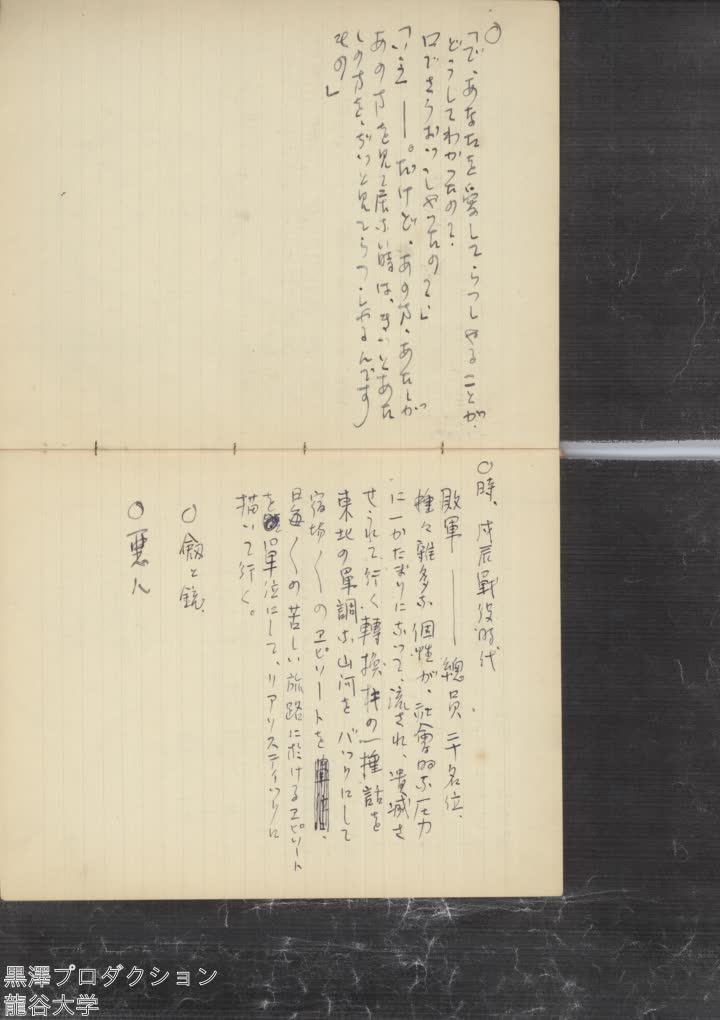 ○
「で、あなたを愛してらつしやることが、
どうしてわかつたの?
口でさうおつしやつたの?」
「いゝえ——。だけど、あの方、あたしが
あの方を見て居ない時は、きつとあた
しの方を、ぢつと見てらつしやるんです
もの」
○時、戊辰戰役時代
敗軍——總員二十名位、
種々雜多な個性が、社會的な圧力
に一かたまりになつて、流され、潰滅さ
せられて行く轉換期の一挿話を
東北の單調な山河をバツクにして
宿場〱のエピソートを
日毎〱の苦しい旅路に於けるエピソート
を單位にして、リアリスティックに
描いて行く。
○劔と銃
○悪人
黒澤プロダクション
龍谷大学